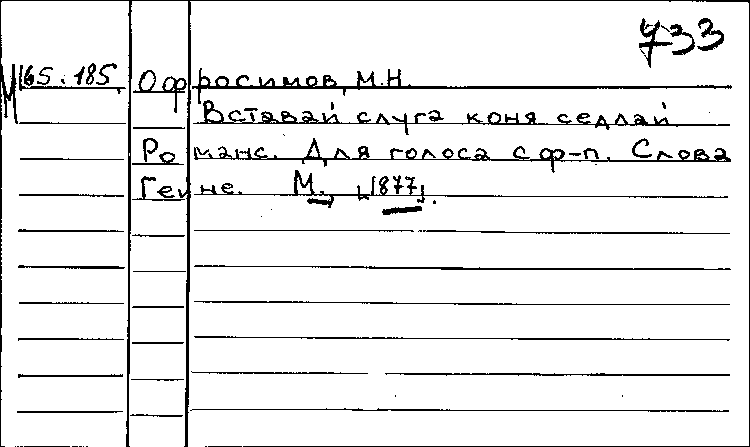 733
М165.185 Оффросимов, М.Н.
Вставай слуга коня седлай
Романс. Для голоса с ф-п. Слова
Гейне. М., [1877].